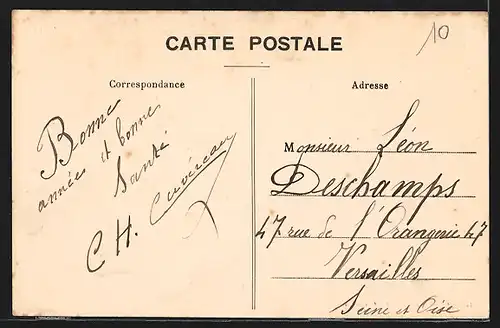 CARTE POSTALE
10
Correspondance
Bonne
année et bonne
Santé
CH.
Adresse
Monsieur Léon
Deschamps
47 rue de l'Orangerie 47
Versailles
Seine et Oise